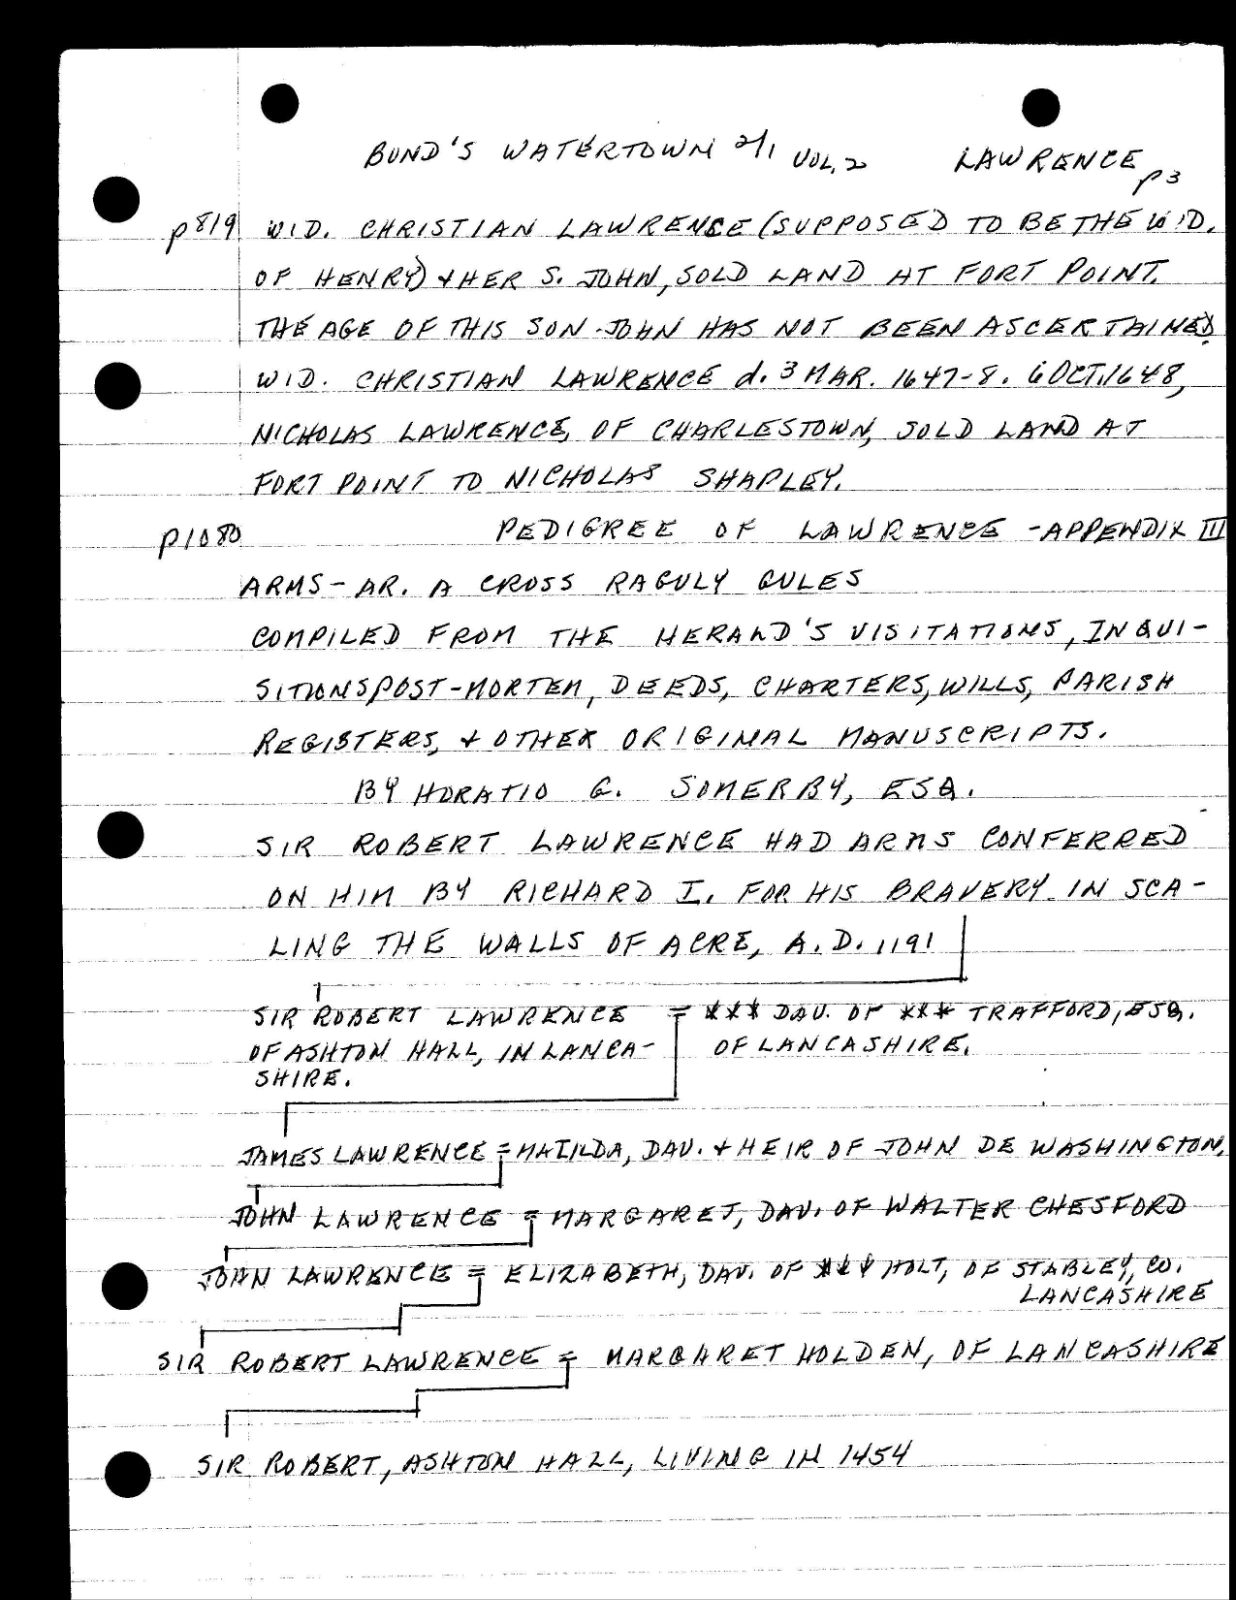 BOND'S WATERTOWN 2/1 VOL. 2 LAWRENCE p3
p819 WID. CHRISTIAN LAWRENCE (SUPPOSED TO BE THE WID.
OF HENRY) & HER S. JOHN, SOLD LAND AT FORT POINT.
THE AGE OF THIS SON JOHN HAS NOT BEEN ASCERTAINED.
WID. CHRISTIAN LAWRENCE d. 3 MAR. 1647-8. 6 OCT. 1648,
NICHOLAS LAWRENCE, OF CHARLESTOWN, SOLD LAND AT
FORT POINT TO NICHOLAS SHAPLEY.
p1080 PEDIGREE OF LAWRENCE - APPENDIX III
ARMS - AR. A CROSS RAGULY GULES
COMPILED FROM THE HERALD'S VISITATIONS, INQUI-
SITIONS POST-MORTEM, DEEDS, CHARTERS, WILLS, PARISH
REGISTERS, & OTHER ORIGINAL MANUSCRIPTS.
BY HORATIO G. SOMERBY, ESQ.
SIR ROBERT LAWRENCE HAD ARMS CONFERRED
ON HIM BY RICHARD I. FOR HIS BRAVERY IN SCA-
LING THE WALLS OF ACRE, A.D. 1191
SIR ROBERT LAWRENCE = *** DAU. OF *** TRAFFORD, ESQ.
OF ASHTON HALL, IN LANCA- OF LANCASHIRE.
SHIRE.
JAMES LAWRENCE = MATILDA, DAU. & HEIR OF JOHN DE WASHINGTON,
JOHN LAWRENCE = MARGARET, DAU. OF WALTER CHESFORD
JOHN LAWRENCE = ELIZABETH, DAU. OF *** HOLT, OF STABLEY, CO.
LANCASHIRE
SIR ROBERT LAWRENCE = MARGARET HOLDEN, OF LANCASHIRE
SIR ROBERT, ASHTON HALL, LIVING IN 1454